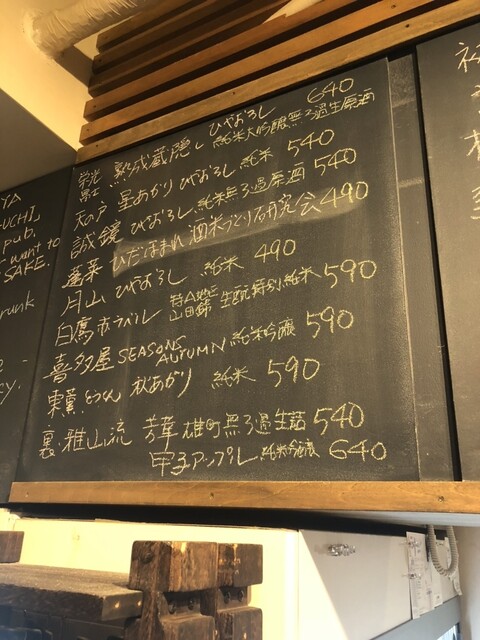 栄光冨士 熟成蔵隠し ひやおろし 純米大吟醸無ろ過生原酒 640
天の戸 星あかり ひやおろし 純米 540
誠鏡 ひやおろし 純米無ろ過原酒 540
蓬莱 ひだほまれ 酒米づくり研究会 490
月山 ひやおろし 純米 490
白鷹赤ラベル 特A地区山田錦 生酛特別純米 590
喜多屋 SEASONS AUTUMN 純米吟醸 590
秋あがり 純米 590
裏・雅山流 芳華 雄町無ろ過生詰 540
甲子アップル 純米吟醸 640
YA
UCHI,
pub.
want to
SAKE.
runk